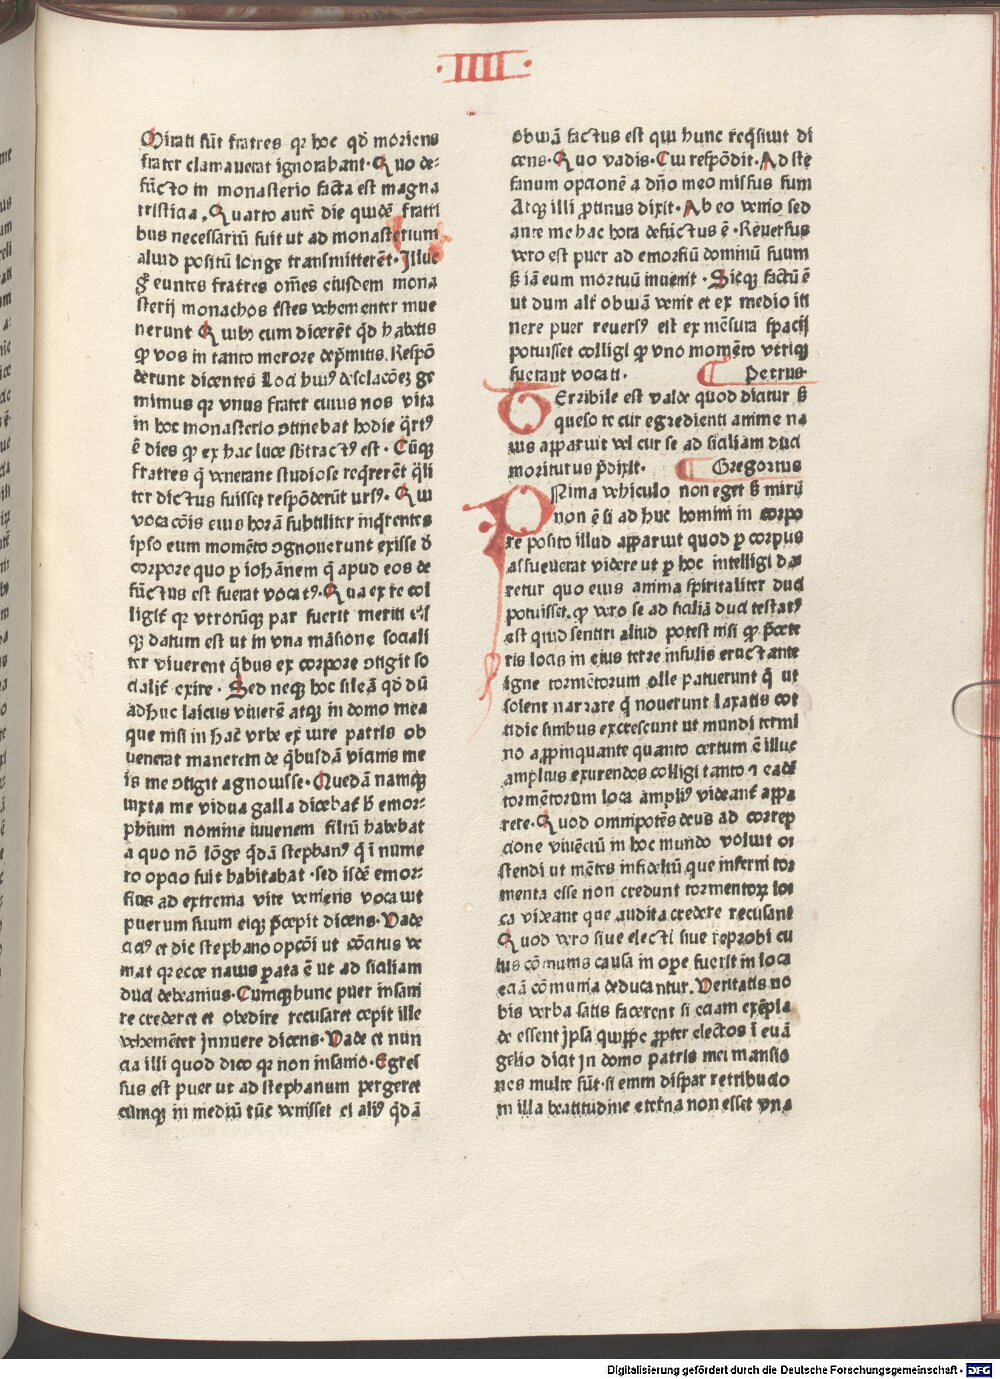 ·IIII·
Mirati sūt fratres qꝛ hoc qđ moriens
frater clamauerat ignorabant·Quo de⸗
fūcto in monasterio facta est magna
tristicia. Quarto autē die quidē fratri
bus necessariū fuit ut ad monasterium
aliud positū longe transmitterēt·Illuc
ḡ euntes fratres om̄es eiusdem mona
sterij monachos tristes vehementer inue
nerunt Quibꝰ cum dicerēt qđ habetis
ꝙ vos in tanto merore dep̄mitis. Respō
derunt dicentes Loci huiꝰ desolacōeꝫ ge
mimus qꝛ vnus frater cuius nos vita
in hoc monasterio ↄtinebat hodie q̄rtꝰ
ē dies ꝙ ex hac luce sb̄tractꝰ est·Cūqꝫ
fratres q̄ venerant studiose reqrerēt q̄li
ter dictus fuisset respōderūt ursꝰ·Qui
vocacōis eius horā subtiliter inq̄rentes
ipso eum momēto ↄgnouerunt exisse đ
corpore quo ꝑ iohānem q̄ apud eos de
fūctus est fuerat vocatꝰ·Qua ex re col
ligit̄ qꝛ vtrorūqꝫ par fuerit meriti eisqꝫ
datum est ut in vna māsione sociali
ter viuerent q̄bus ex corpore ↄtigit so
cialit̄ exire·Sed neqꝫ hoc sileā qđ dū
adhuc laicus viuerē atqꝫ in domo mea
que nisi in hac vrbe ex iure patris ob
uenerat manerem de q̄busdā vicinis me
is me ↄtigit agnouisse·Quedā namqꝫ
iuxta me vidua galla dicebat̄ h̄ emor⸗
phium nomine iuuenem filiū habebat
a quo nō lōge q̄dā stephanꝰ q̄ ī nume
ro opcio fuit habitabat·sed isdē emor⸗
fius ad extrema vite veniens vocauit
puerum suum eiqꝫ p̄cepit dicens·Vade
citiꝰ et dic stephano opcōi ut cōcitus ve
niat qꝛ ecce nauis ꝑata ē ut ad siciliam
duci debeamus·Cumqꝫ hunc puer insani
re crederet et obedire recusaret cepit ille
vehemēter innuere dicens·Vade et nun
cia illi quod dico qꝛ non insanio·Egres
sus est puer ut ad stephanum pergeret
cūmqꝫ in mediū tūc venisset ei aliꝰ q̄dā
obuiā factus est qui hunc req̄siuit di
cens·Quo vadis·Cui respōdit·Ad ste
fanum opcionē a dn̄o meo missus sum
Atqꝫ illi ꝓtinus dixit·Ab eo venio sed
ante me hac hora defūctus ē·Reuersus
vero est puer ad emorfiū dominū suum
ß iā eum mortuū inuenit·Sicqꝫ factū ē
ut dum alt̄ obuiā venit et ex medio iti
nere puer reuersꝰ est ex mēsura spacij
potuisset colligi ꝙ vno momēto vtriqꝫ
fuerant vocati. Petrus
TErribile est valde quod dicitur ß
queso te cur egredienti anime na
uis apparuit vel cur se ad siciliam duci
moriturus p̄dixit. Gregorius
PNima vehiculo non eget ß mirū
non ē si ad huc homini in corpo
re posito illud apparuit quod ꝑ corpus
assueuerat videre ut ꝑ hoc intelligi da
retur quo eius anima spiritaliter duci
potuisset. ꝙ vero se ad siciliā duci testatꝰ
est quid sentiri aliud potest nisi ꝙ p̄cete
ris locis in eius terre insulis eructante
igne tormētorum olle patuerunt q̄ ut
solent narrare q̄ nouerunt laxatis cot
tidie sinibus excrescunt ut mundi termi
no appinquante quanto certum ē illuc
amplius exurendos colligi tanto ⁊ eadē
tormētorum loca ampliꝰ videant̄ appa
rere·Quod omnipotēs deus ad correp
cione viuēciū in hoc mundo voluit os
stendi ut mētes infidelitū que inferni tor
menta esse non credunt tormentoꝝ lo
ca videant que audita credere recusant
Quod vero siue electi siue reprobi cu
ius cōmunis causa in ope fuerit in loca
eciā cōmunia deducantur. Veritatis no
bis verba satis facerent si eciam exēpla
de essent ipsa quippe ꝓpter electos ī euā
gelio dicit in domo patris mei mansio
nes multe sūt·si enim dispar retribucio
in illa beatitudine eterna non esset vna
Digitalisierung gefördert durch die Deutsche Forschungsgemeinschaft - DFG